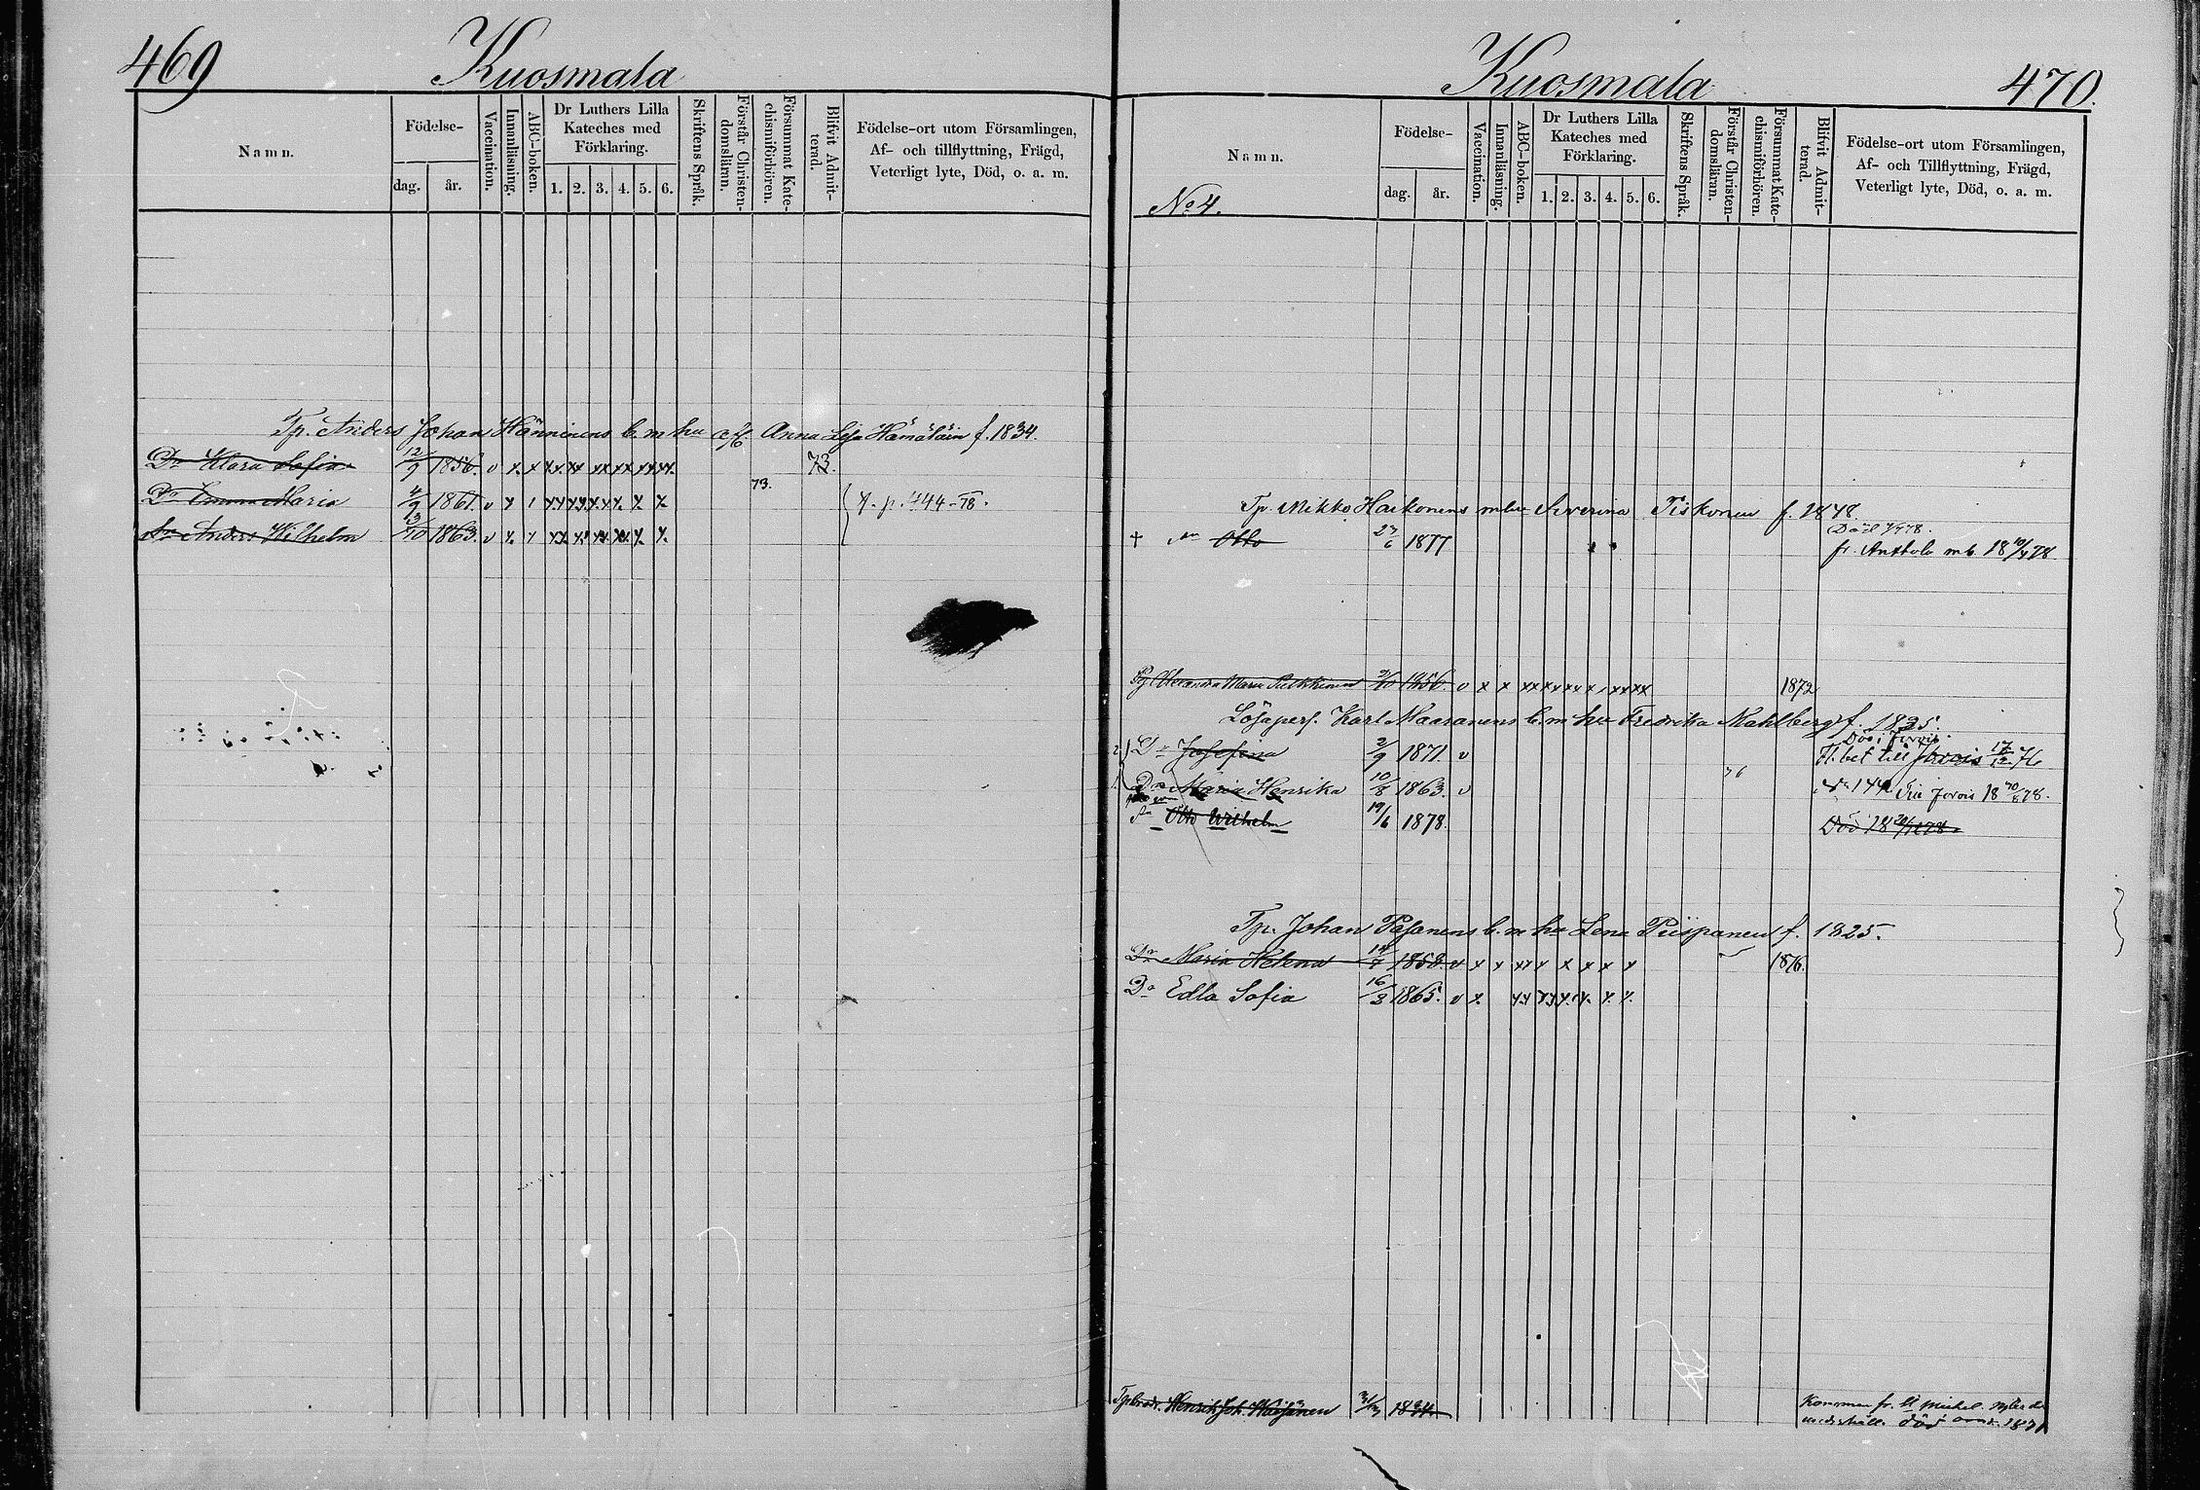 469 Kuosmala
Namn. Födelse- dag. år. Vaccination. Innanläsning. ABC-boken. Dr Luthers Lilla Kateches med Förklaring. 1. 2. 3. 4. 5. 6. Skriftens Språk. Förstår Christen-domsläran. Försummat Kate-chismiförhören. Blifvit Admit-terad. Födelse-ort utom Församlingen, Af- och tillflyttning, Frägd, Veterligt lyte, Död, o. a. m.
Tp. Anders Johan Hänninens b. m hu Anna Lisa Hämäläin f. 1834.
Dr Klara Sofia 12/9 1856. v x x xx xx xx xx xx xx. 73.
Dr Emma Maria 4/9 1861. v x 1 xx xx xx x. x. x. 73.
p. 444 - 78.
Sn Anders Wilhelm 13/10 1863. v x. x xx x. xx xx. x. x.
Kuosmala 470.
Namn. No 4. Födelse- dag. år. Vaccination. Innanläsning. ABC-boken. Dr Luthers Lilla Kateches med Förklaring. 1. 2. 3. 4. 5. 6. Skriftens Språk. Förstår Christen-domsläran. Försummat Kate-chismiförhören. Blifvit Admit-terad. Födelse-ort utom Församlingen, Af- och Tillflyttning, Frägd, Veterligt lyte, Död, o. a. m.
Tp. Mikko Haikonens m hu Severina Tiskonen f. 1848
† Sn Otto 27/6 1877 fr. Anttola mb. 18 10/4 78
Pig. Maria Pulkkinen 1856. v x x xx x x xx x x xx xx 1872
Lösapers. Karl Maaranens b. m hu Fredrika Mahlberg f. 1835.
Död i Jorois
2 Dr Josefina 2/9 1871. v Fl. bet till Jorois 17/12 76
1. Dr Maria Henrika 10/8 1863. v 76 144 Jorois 18 10/8 78.
Sn Otto Wilhelm 19/6 1878. Död 18
Tp. Johan Pasanens b. m hu Lena Piispanen f. 1825.
Dr Maria Helena 14/7 1858. v x x xx x x x x x 1876.
Dr Edla Sofia 16/3 1865. v x. xx xx x. x. x. x.
Henrik Joh. Kommen fr. St Michel.
död 1871